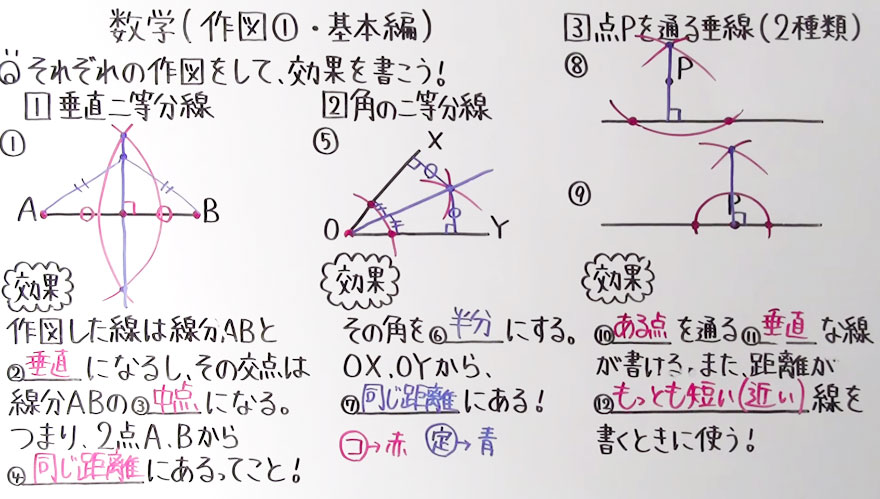 数学(作図①・基本編)
それぞれの作図をして、効果を書こう!
1 垂直二等分線
①
A
B
効果
作図した線は線分ABと
②垂直になるし、その交点は
線分ABの③中点になる。
つまり、2点A、Bから
④同じ距離にあるってこと!
2 角の二等分線
⑤
X
O
Y
効果
その角を⑥半分にする。
OX、OYから、
⑦同じ距離にある!
コ→赤 定→青
3 点Pを通る垂線(2種類)
⑧
P
⑨
P
効果
⑩ある点を通る⑪垂直な線
が書ける。また、距離が
⑫もっとも短い(近い)線を
書くときに使う!